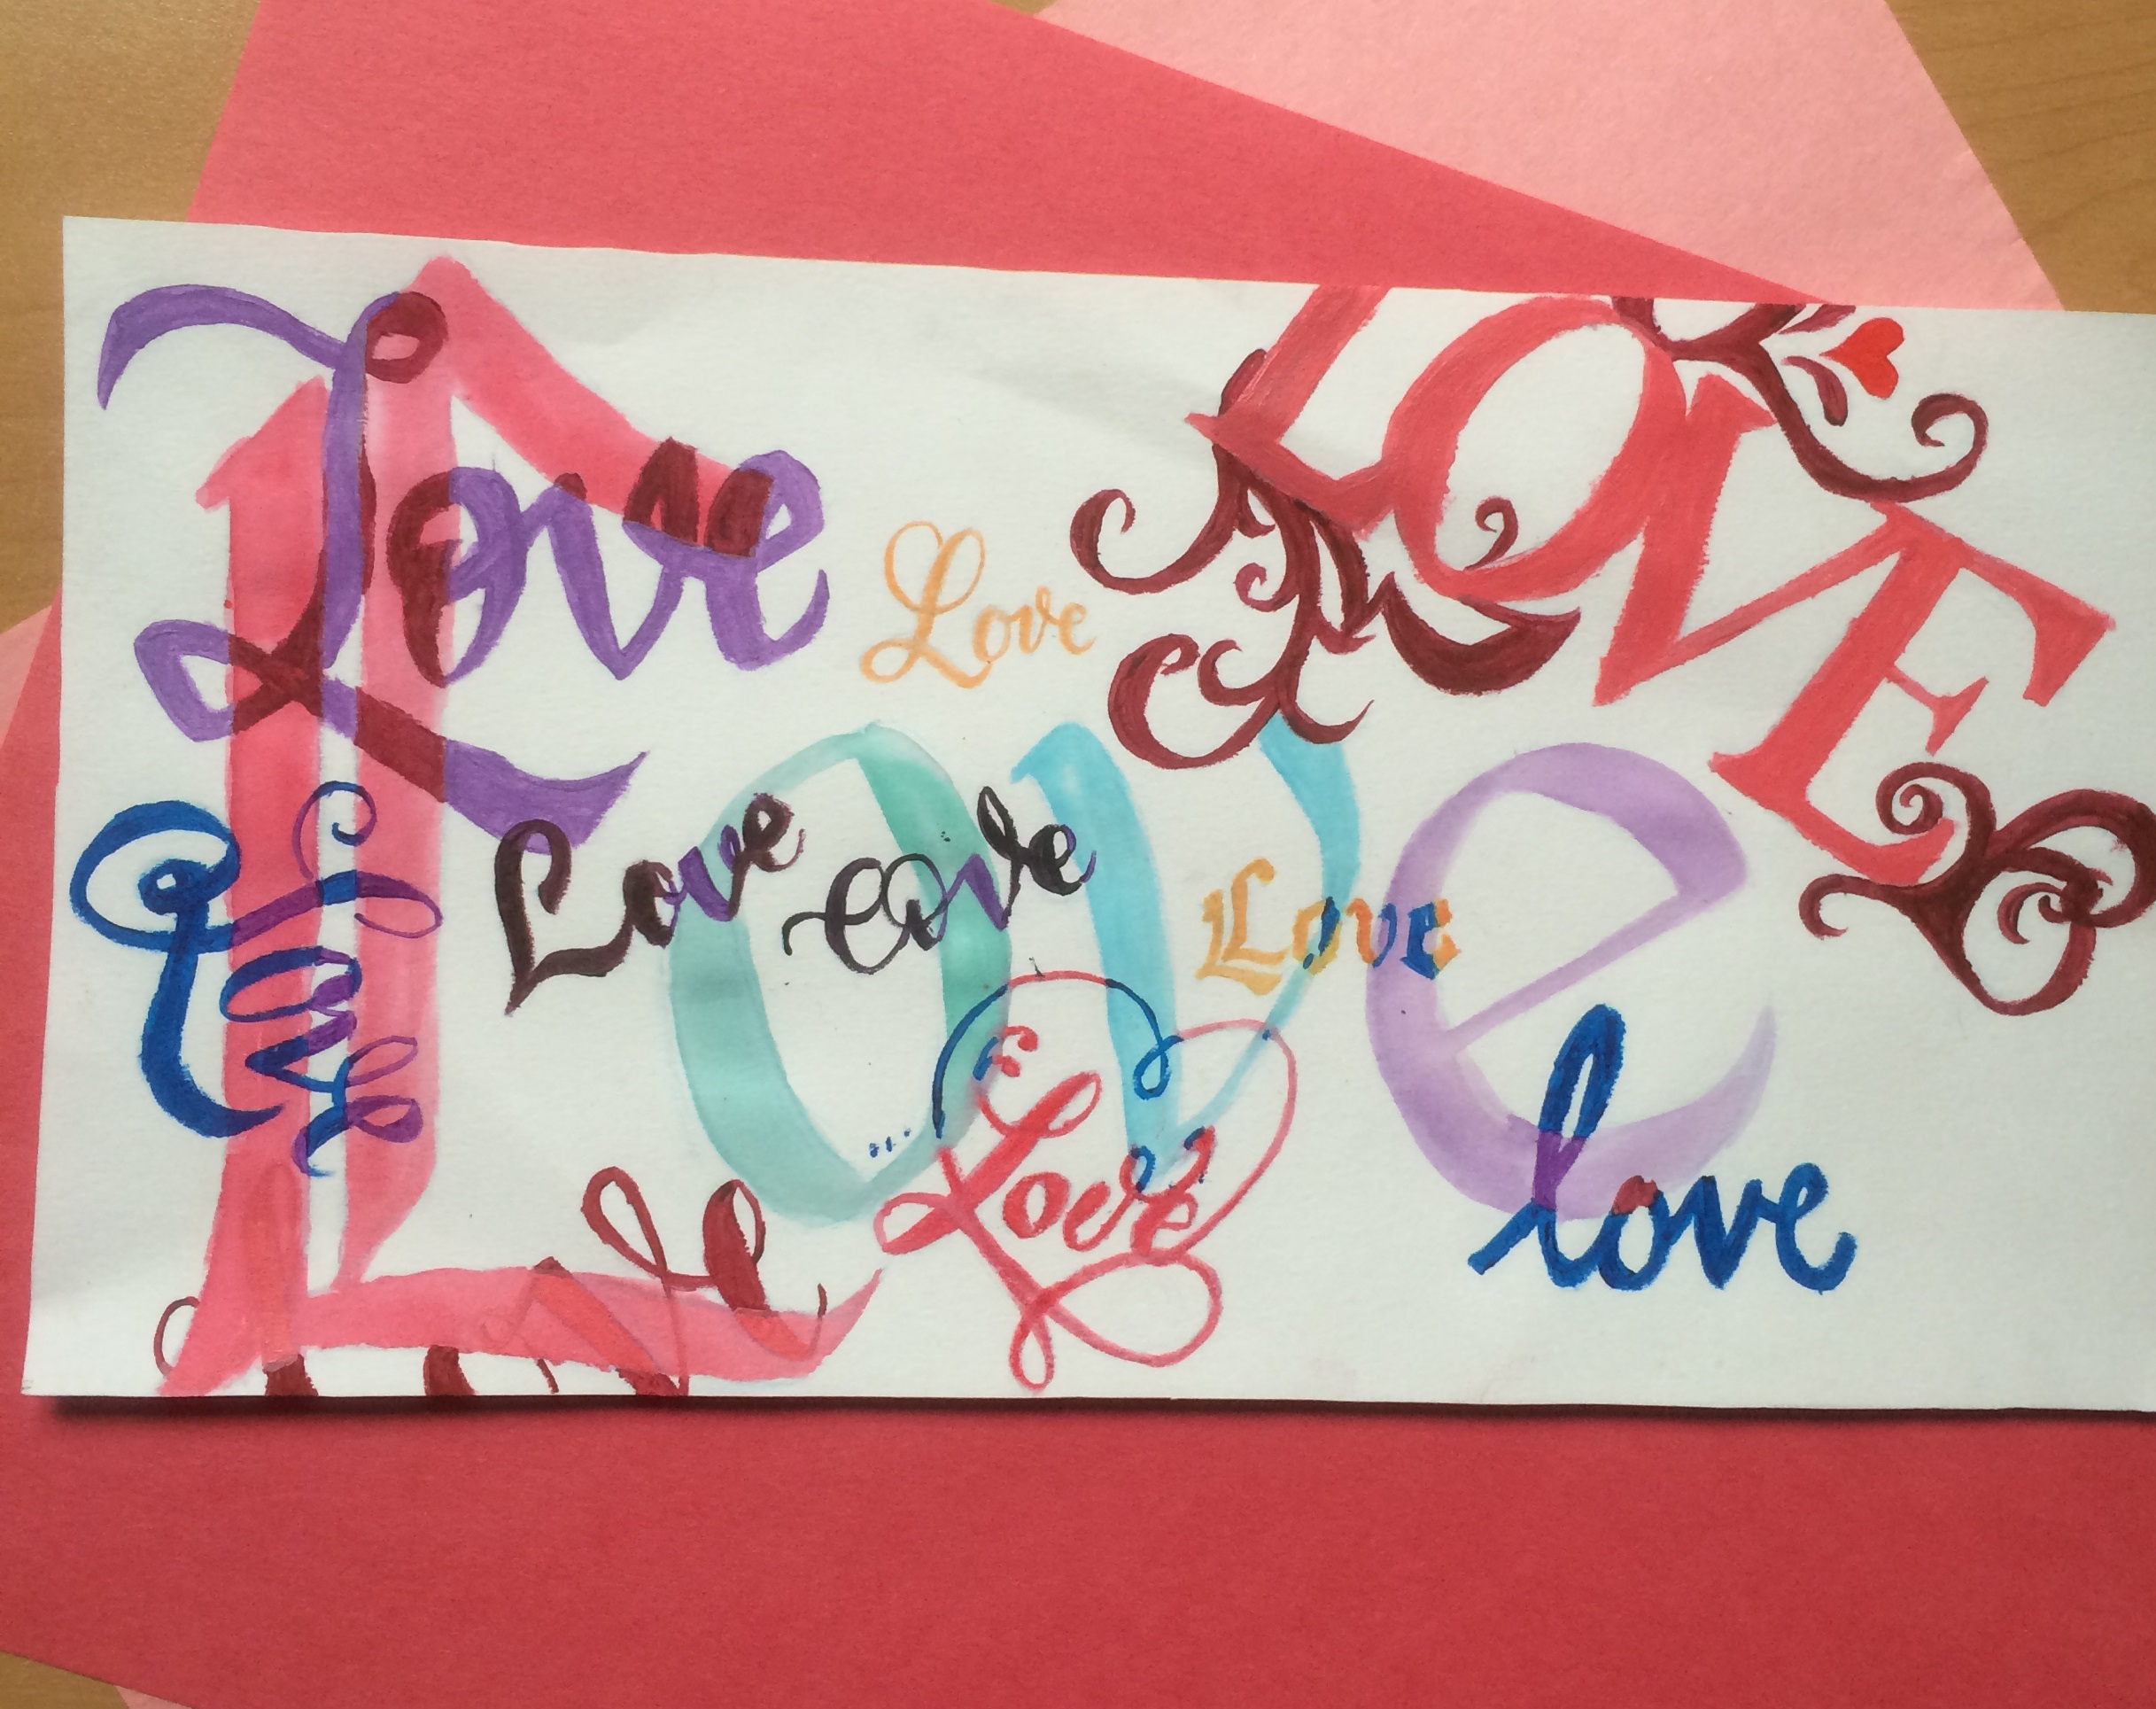 Love
LOVE
Love
Love
Love
Love
Love
Love
Love
love
Love